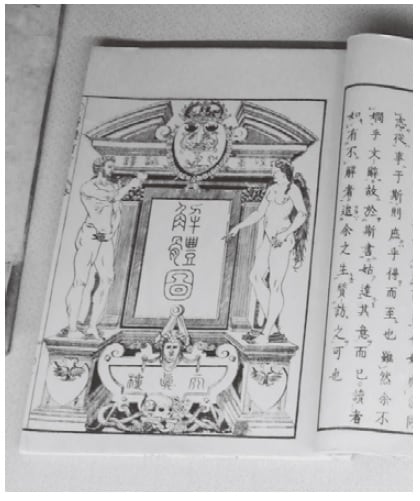 志從事于斯則庶乎得而至也雖然余不
嫺乎文辭故於斯書姑達其意而已讀者
如有不解者逮余之生質訪之可也
解體圖
天真樓